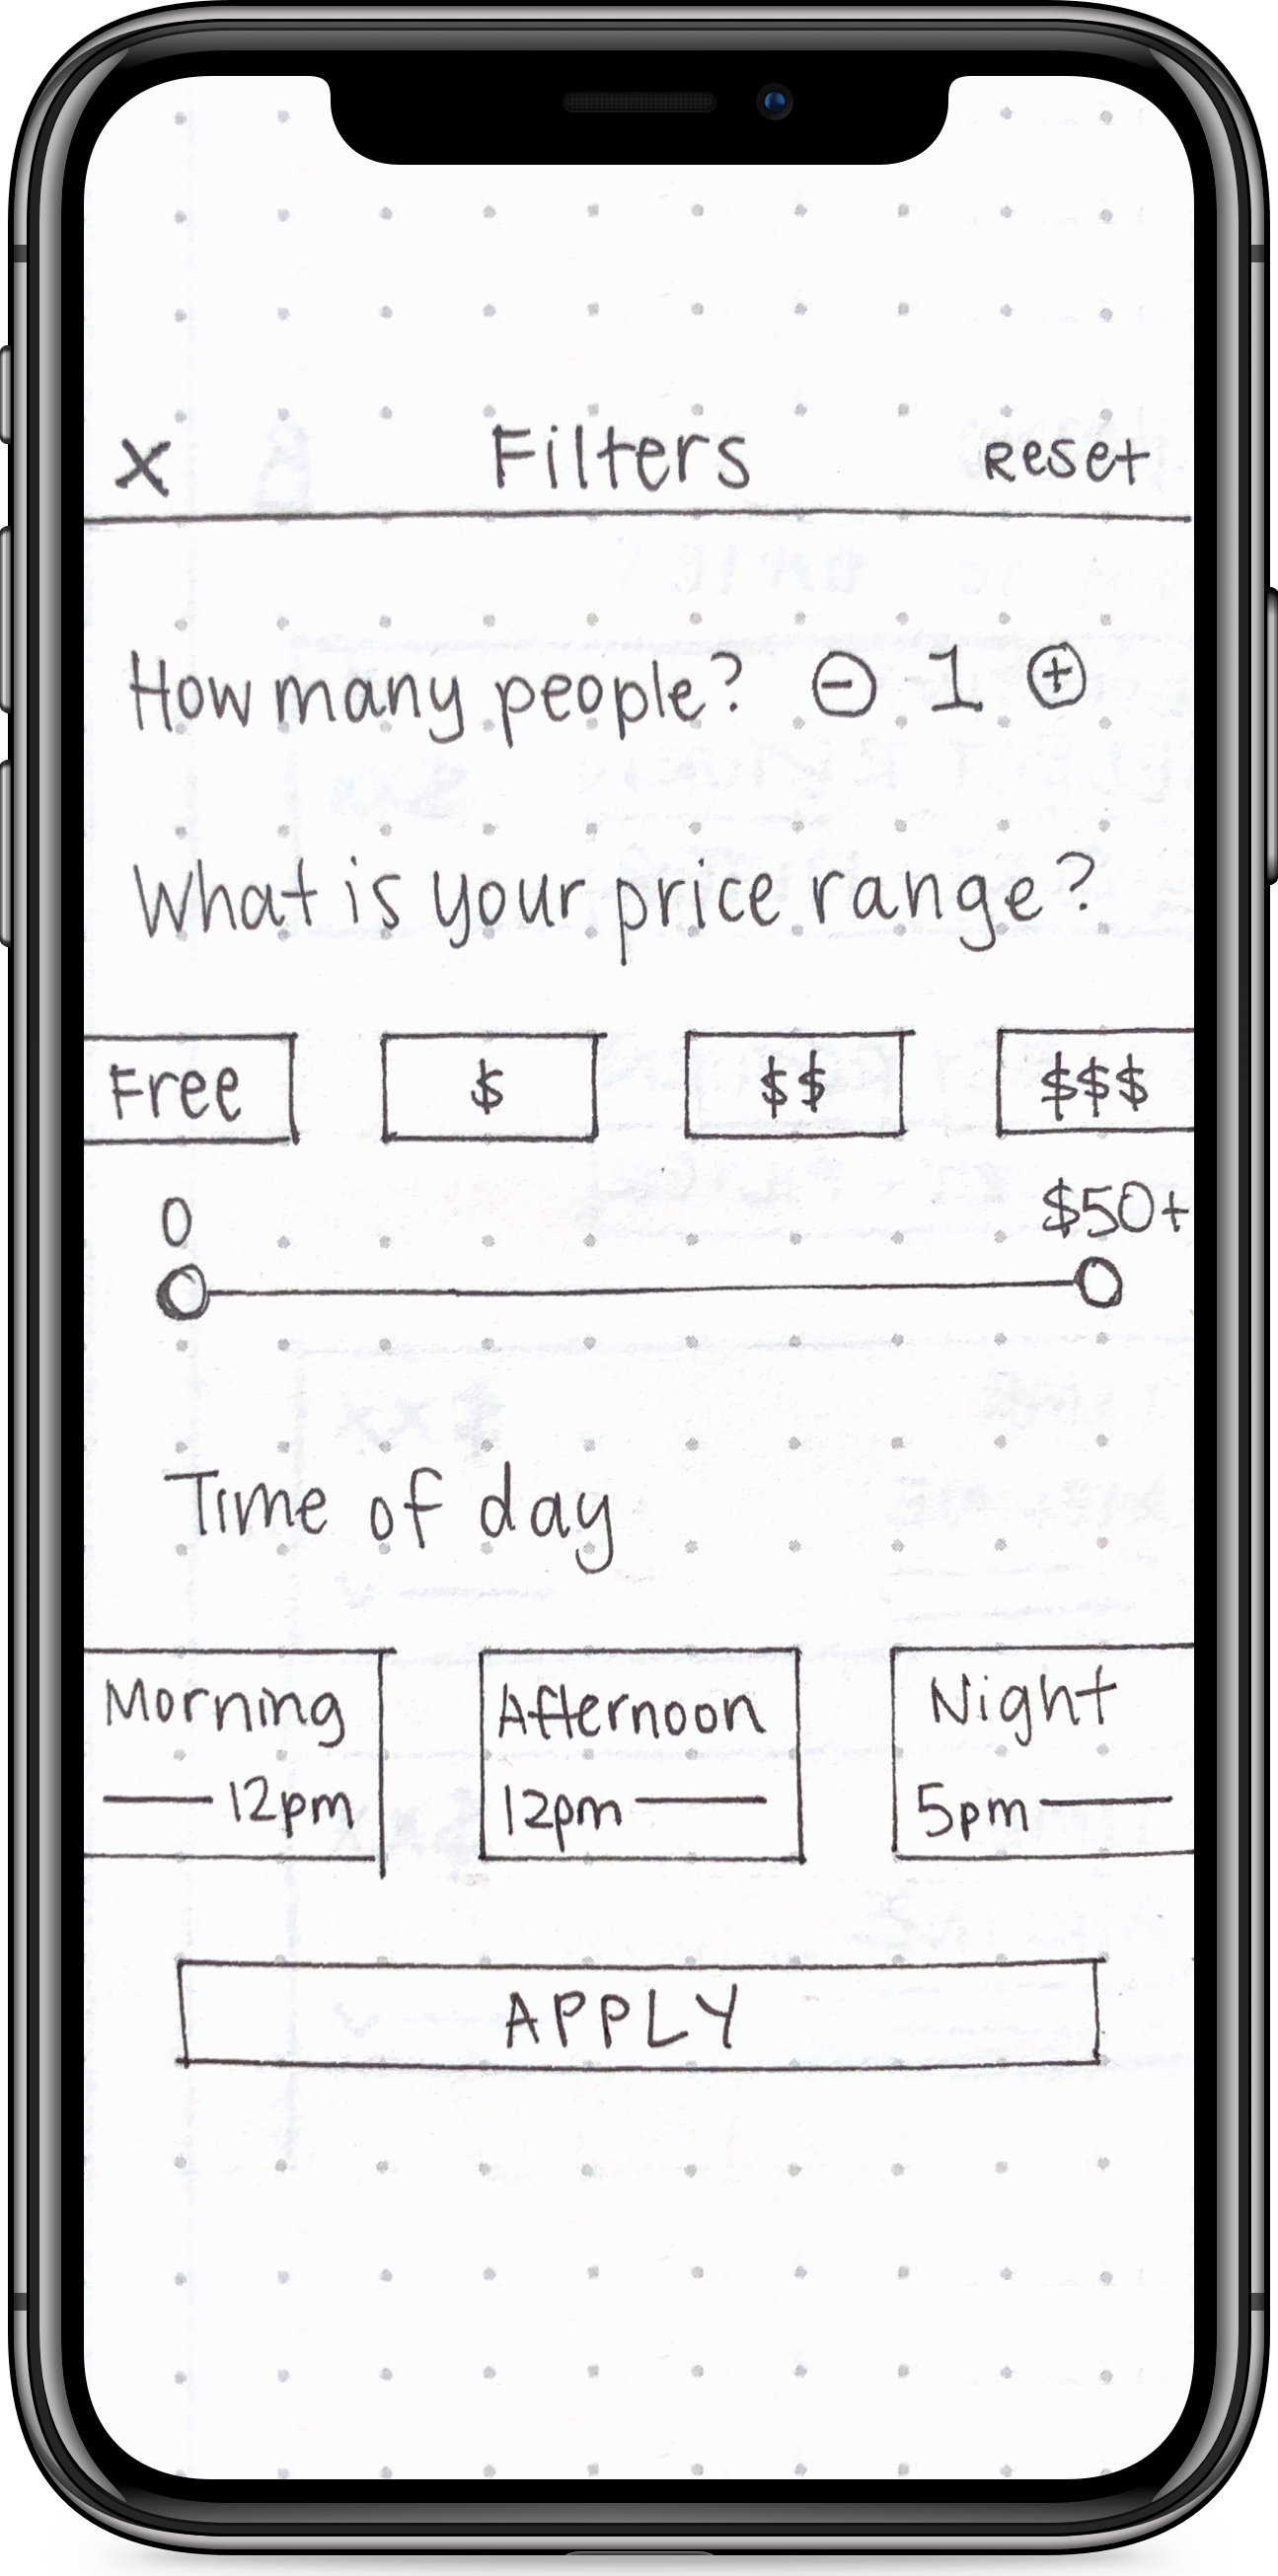 X Filters Reset
How many people? - 1 +
What is your price range?
Free $ $$ $$$
0 $50+
Time of day
Morning Afternoon Night
— 12pm 12pm — 5pm —
APPLY